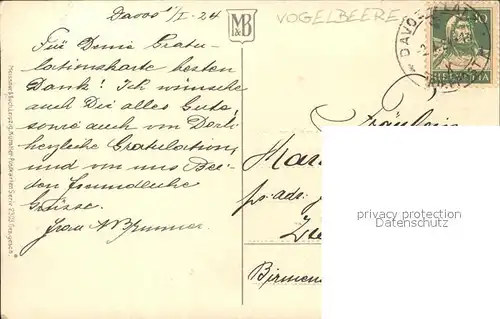 Davos 1/I. 24
Für Deine Gratu-
lationskarte besten
Dank! Ich wünsche
auch Dir alles Gute,
sowie auch von Derli
herzliche Gratulation,
und von uns Bei-
den freundliche
Grüsse.
Frau A. Brunner
M&B
VOGELBEERE
DAVOS-PLATZ
HELVETIA
Fräulein
pr. adr.
Birmens
privacy protection
Datenschutz